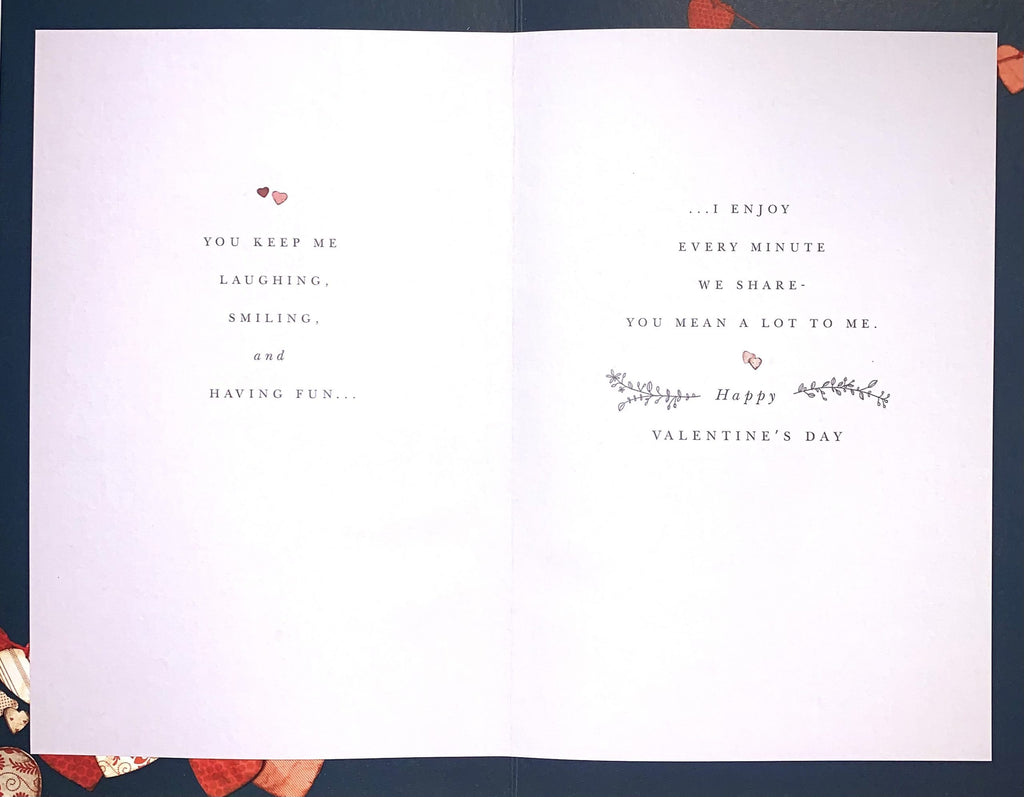 YOU KEEP ME
LAUGHING,
SMILING,
and
HAVING FUN...
...I ENJOY
EVERY MINUTE
WE SHARE-
YOU MEAN A LOT TO ME.
Happy
VALENTINE'S DAY